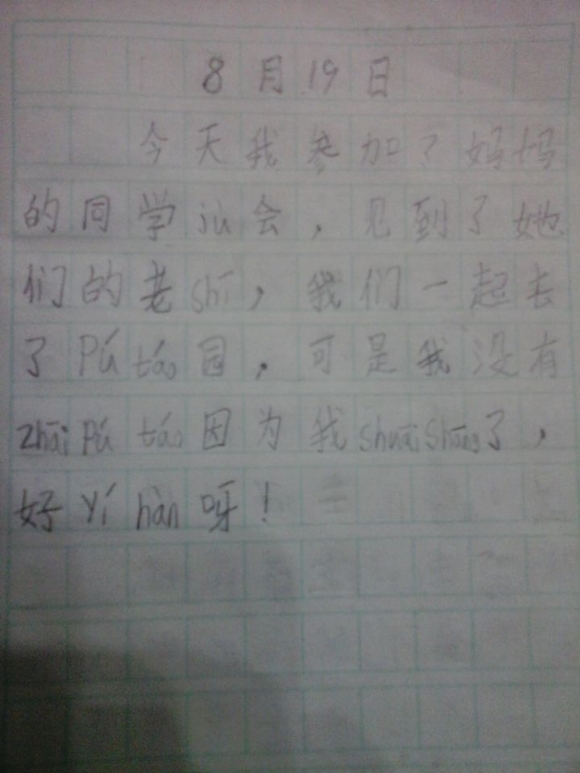 8月19日
今天我参加了妈妈
的同学jù会，见到了她
们的老shī，我们一起去
了Pú táo园，可是我没有
zhāi Pú táo因为我shuāi shāng了，
好yí hàn呀！